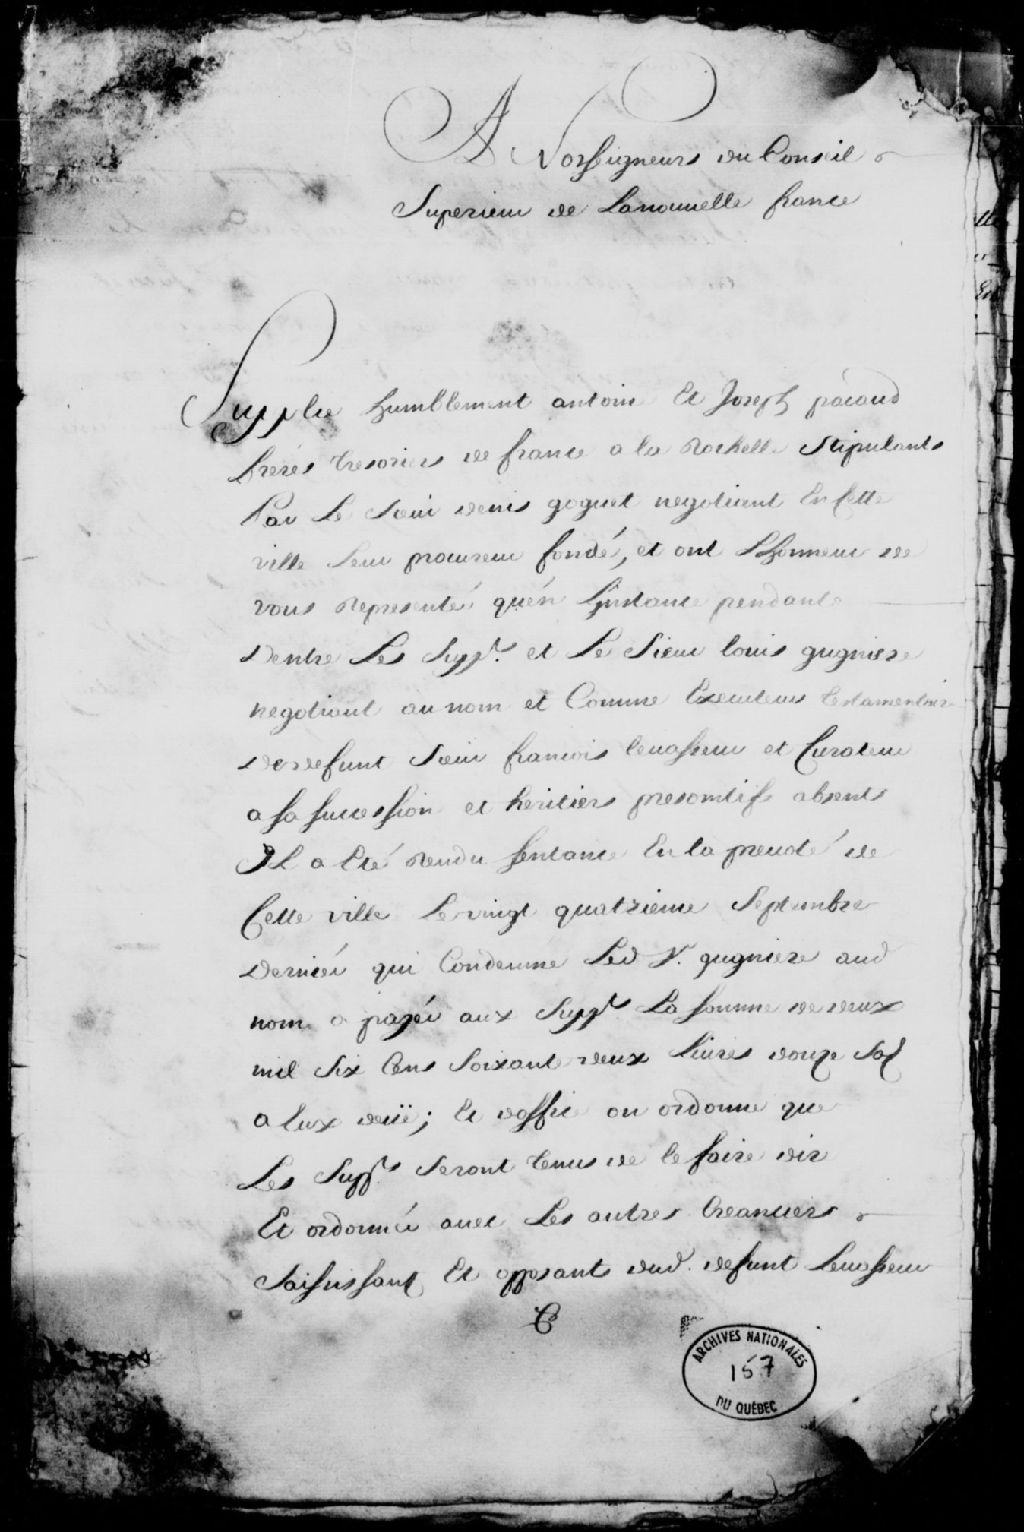 A Nosseigneurs du Conseil
Superieur de Lanouuelle france
Supplie humblement antoine Et Joseph pacaud
freres tresoriers de france a la Rochelle Stipulants
Par Le Sieur denis goguet negotiant En Cette
ville Leur procureur fondé, et ont Lhonneur de
vous Representé qu'en Linstance pendante
Dentre Les Supp.ts et Le Sieur louis gugniere
negotiant au nom et Comme Executeur testamentaire
de deffunt Sieur francois leuasseur et Curateur
a sa succession et heritiers presomtifs absents
Il a Eté Rendu sentance En la preuoté de
Cette ville Le vingt quatrieme Septembre
Dernier qui Condemne Led S.r gugniere aud
nom a payér aux Supp.ts La somme de deux
mil Six Cens Soixante deux Liures douze Sols
a Eux deüe; Et doffice on ordonne que
Les Supp.ts Seront tenus de le faire dire
Et ordonnér auec Les autres Creanciers
Saisissants Et opposants dud. defunt Leuasseur
ARCHIVES NATIONALES
157
DU QUÉBEC